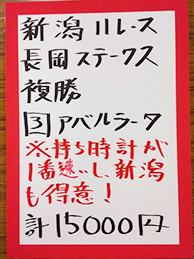 新潟11レース
長岡ステークス
複勝
3アバルラータ
※持ち時計が
1番速いし、新潟
も得意！
計15000円